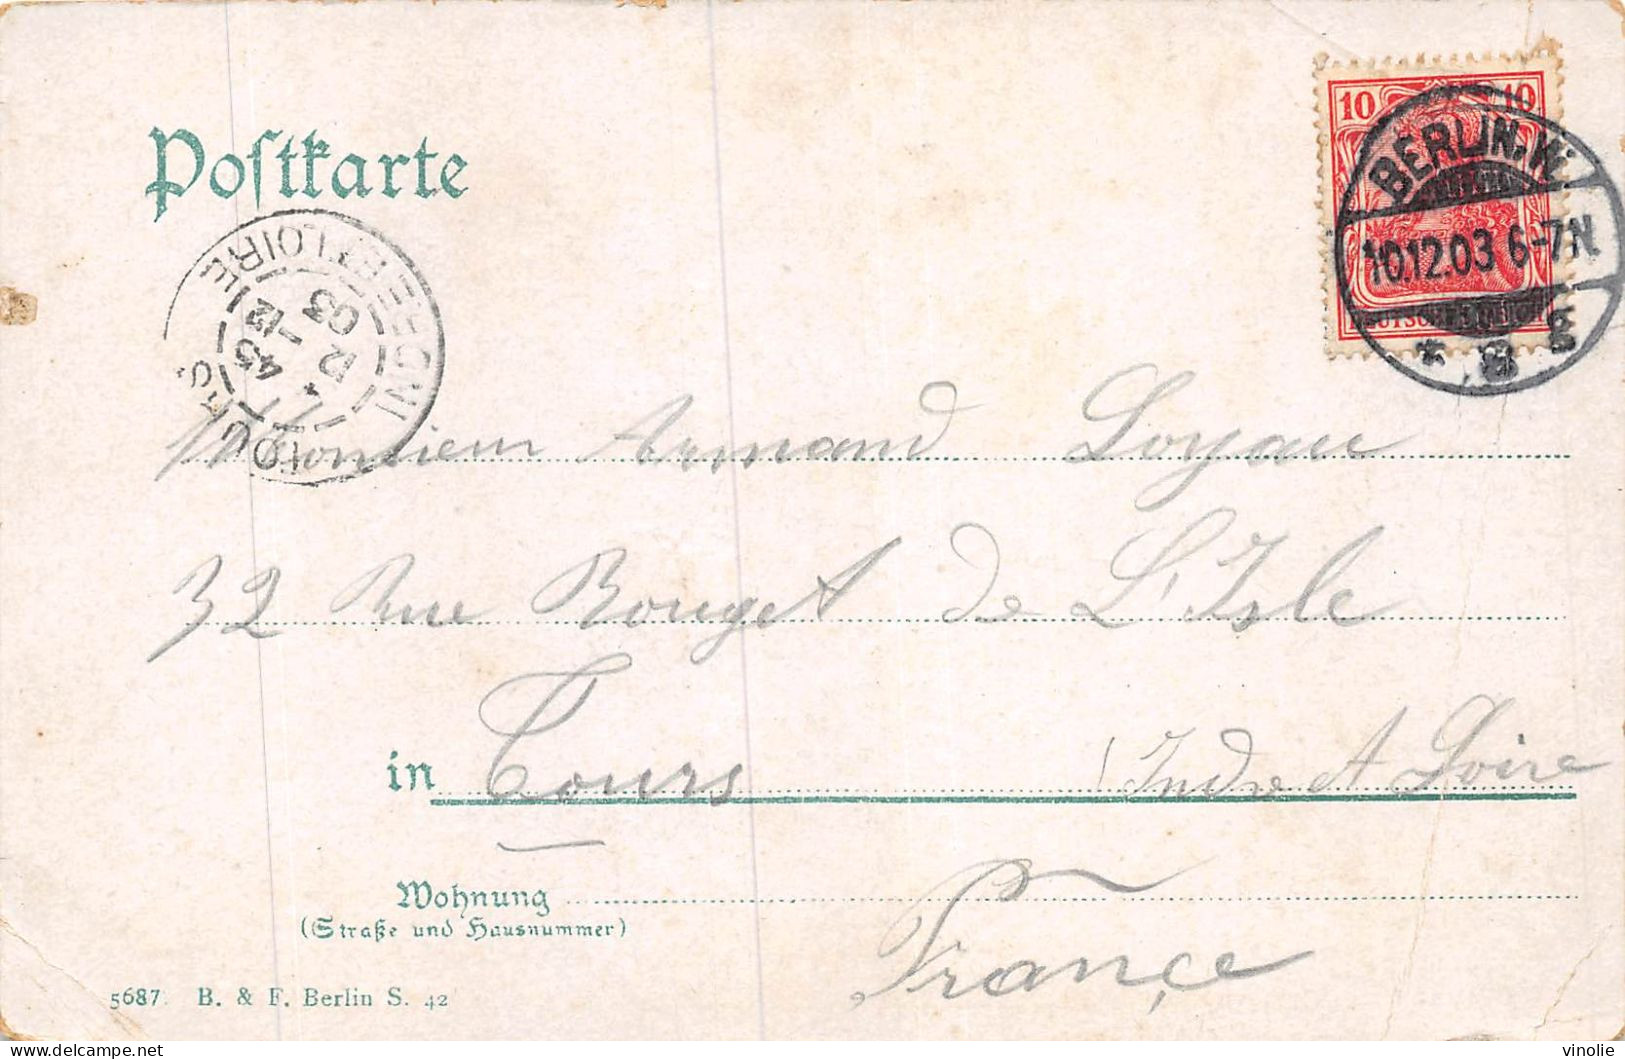 Postkarte
10 10
DEUTSCHES REICH
BERLIN. W.
10.12.03 6-7N
* 8 g
TOURS
INDRE-ET-LOIRE
45
12 -12
03
Monsieur Armand Loyau
32 Rue Rouget de L'Isle
in Tours (Indre et Loire
France
Wohnung
(Straße und Hausnummer)
5687. B. & F. Berlin S. 42
delcampe.net
vinolie